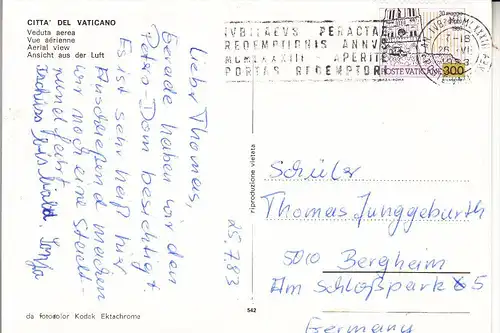 CITTA' DEL VATICANO
Veduta aerea
Vue aérienne
Aerial view
Ansicht aus der Luft
Lieber Thomas,
Gerade haben wir den
Peters-Dom besichtigt.
Es ist sehr heiß hier.
Anschließend machen
wir noch eine Stadt-
rundfahrt
Tschüss bis bald.
25.7.83
da fotocolor Kodak Ektachrome
542
riproduzione vietata
IVBILAEVS PERACTA
REDEMPTIONIS ANNV
MCMLXXXIII - APERITE
PORTAS REDEMPTOR
POSTE VATICANE
300
Schüler
Thomas Junggeburth
5010 Bergheim
Am Schloßpark 5
Germany